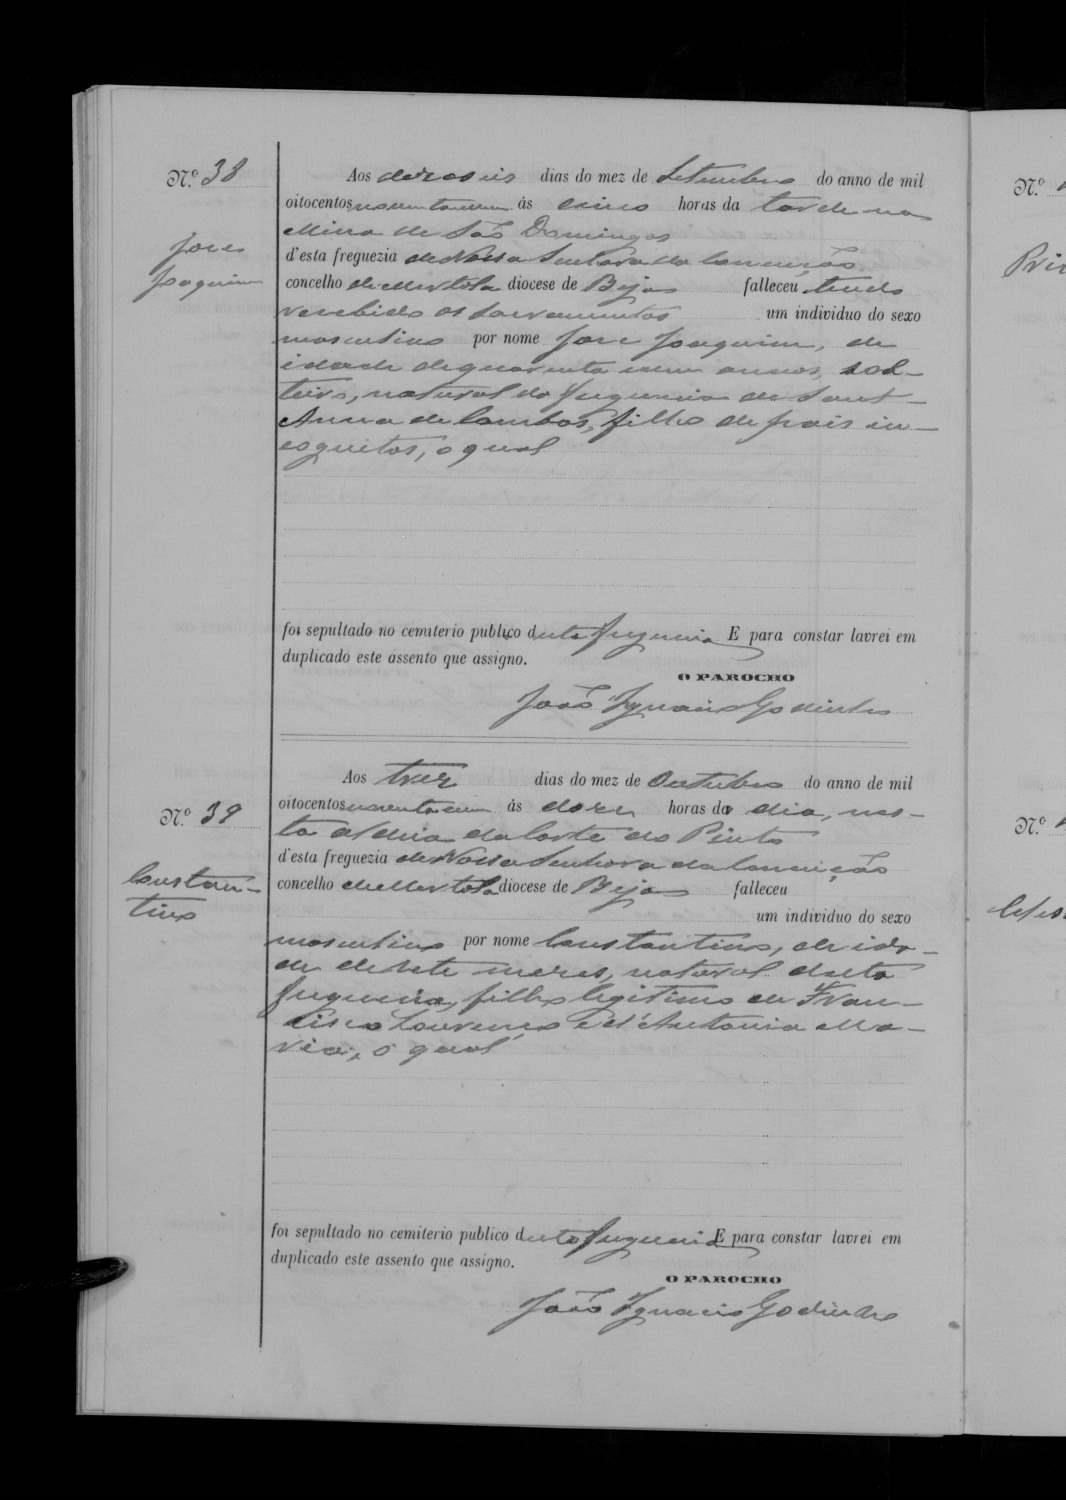 N.º 38
José
Joaquim
Aos dezaseis dias do mez de Setembro do anno de mil
oitocentos noventa e um ás cinco horas da tarde na
Mina de São Domingos
d'esta freguezia de Nossa Senhora da Conceição
concelho de Mertola diocese de Beja falleceu tendo
recebido os Sacramentos um individuo do sexo
masculino por nome José Joaquim, de
idade de quarenta e um annos, sol-
teiro, natural da freguezia de Sant-
Anna de Cambas, filho de pais in-
cognitos, o qual
foi sepultado no cemiterio publico d'esta freguezia E para constar lavrei em
duplicado este assento que assigno.
O PAROCHO
João Ignacio Godinho
N.º 39
Constan-
tino
Aos tres dias do mez de Outubro do anno de mil
oitocentos noventa e um ás doze horas do dia, nes-
ta aldeia da Corte do Pinto
d'esta freguezia de Nossa Senhora da Conceição
concelho de Mertola diocese de Beja falleceu
um individuo do sexo
masculino por nome Constantino, de ida-
de de sete mezes, natural desta
freguezia, filho legitimo de Fran-
cisco Lourenço e d'Antonia Ma-
ria, o qual
foi sepultado no cemiterio publico d'esta freguezia E para constar lavrei em
duplicado este assento que assigno.
O PAROCHO
João Ignacio Godinho
N.º
N.º